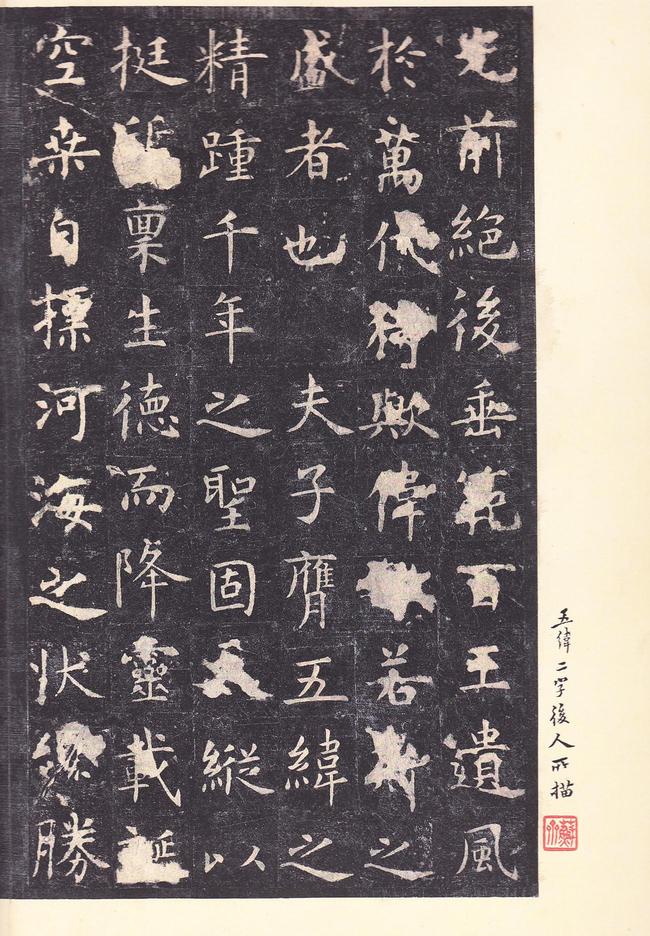 光前絕後垂範百王遺風
於萬代猗歟偉若斯之
盛者也 夫子膺五緯之
精踵千年之聖固天縱以
挺稟生德而降靈載誕
空桑自標河海之狀纔勝
五緯二字後人所描